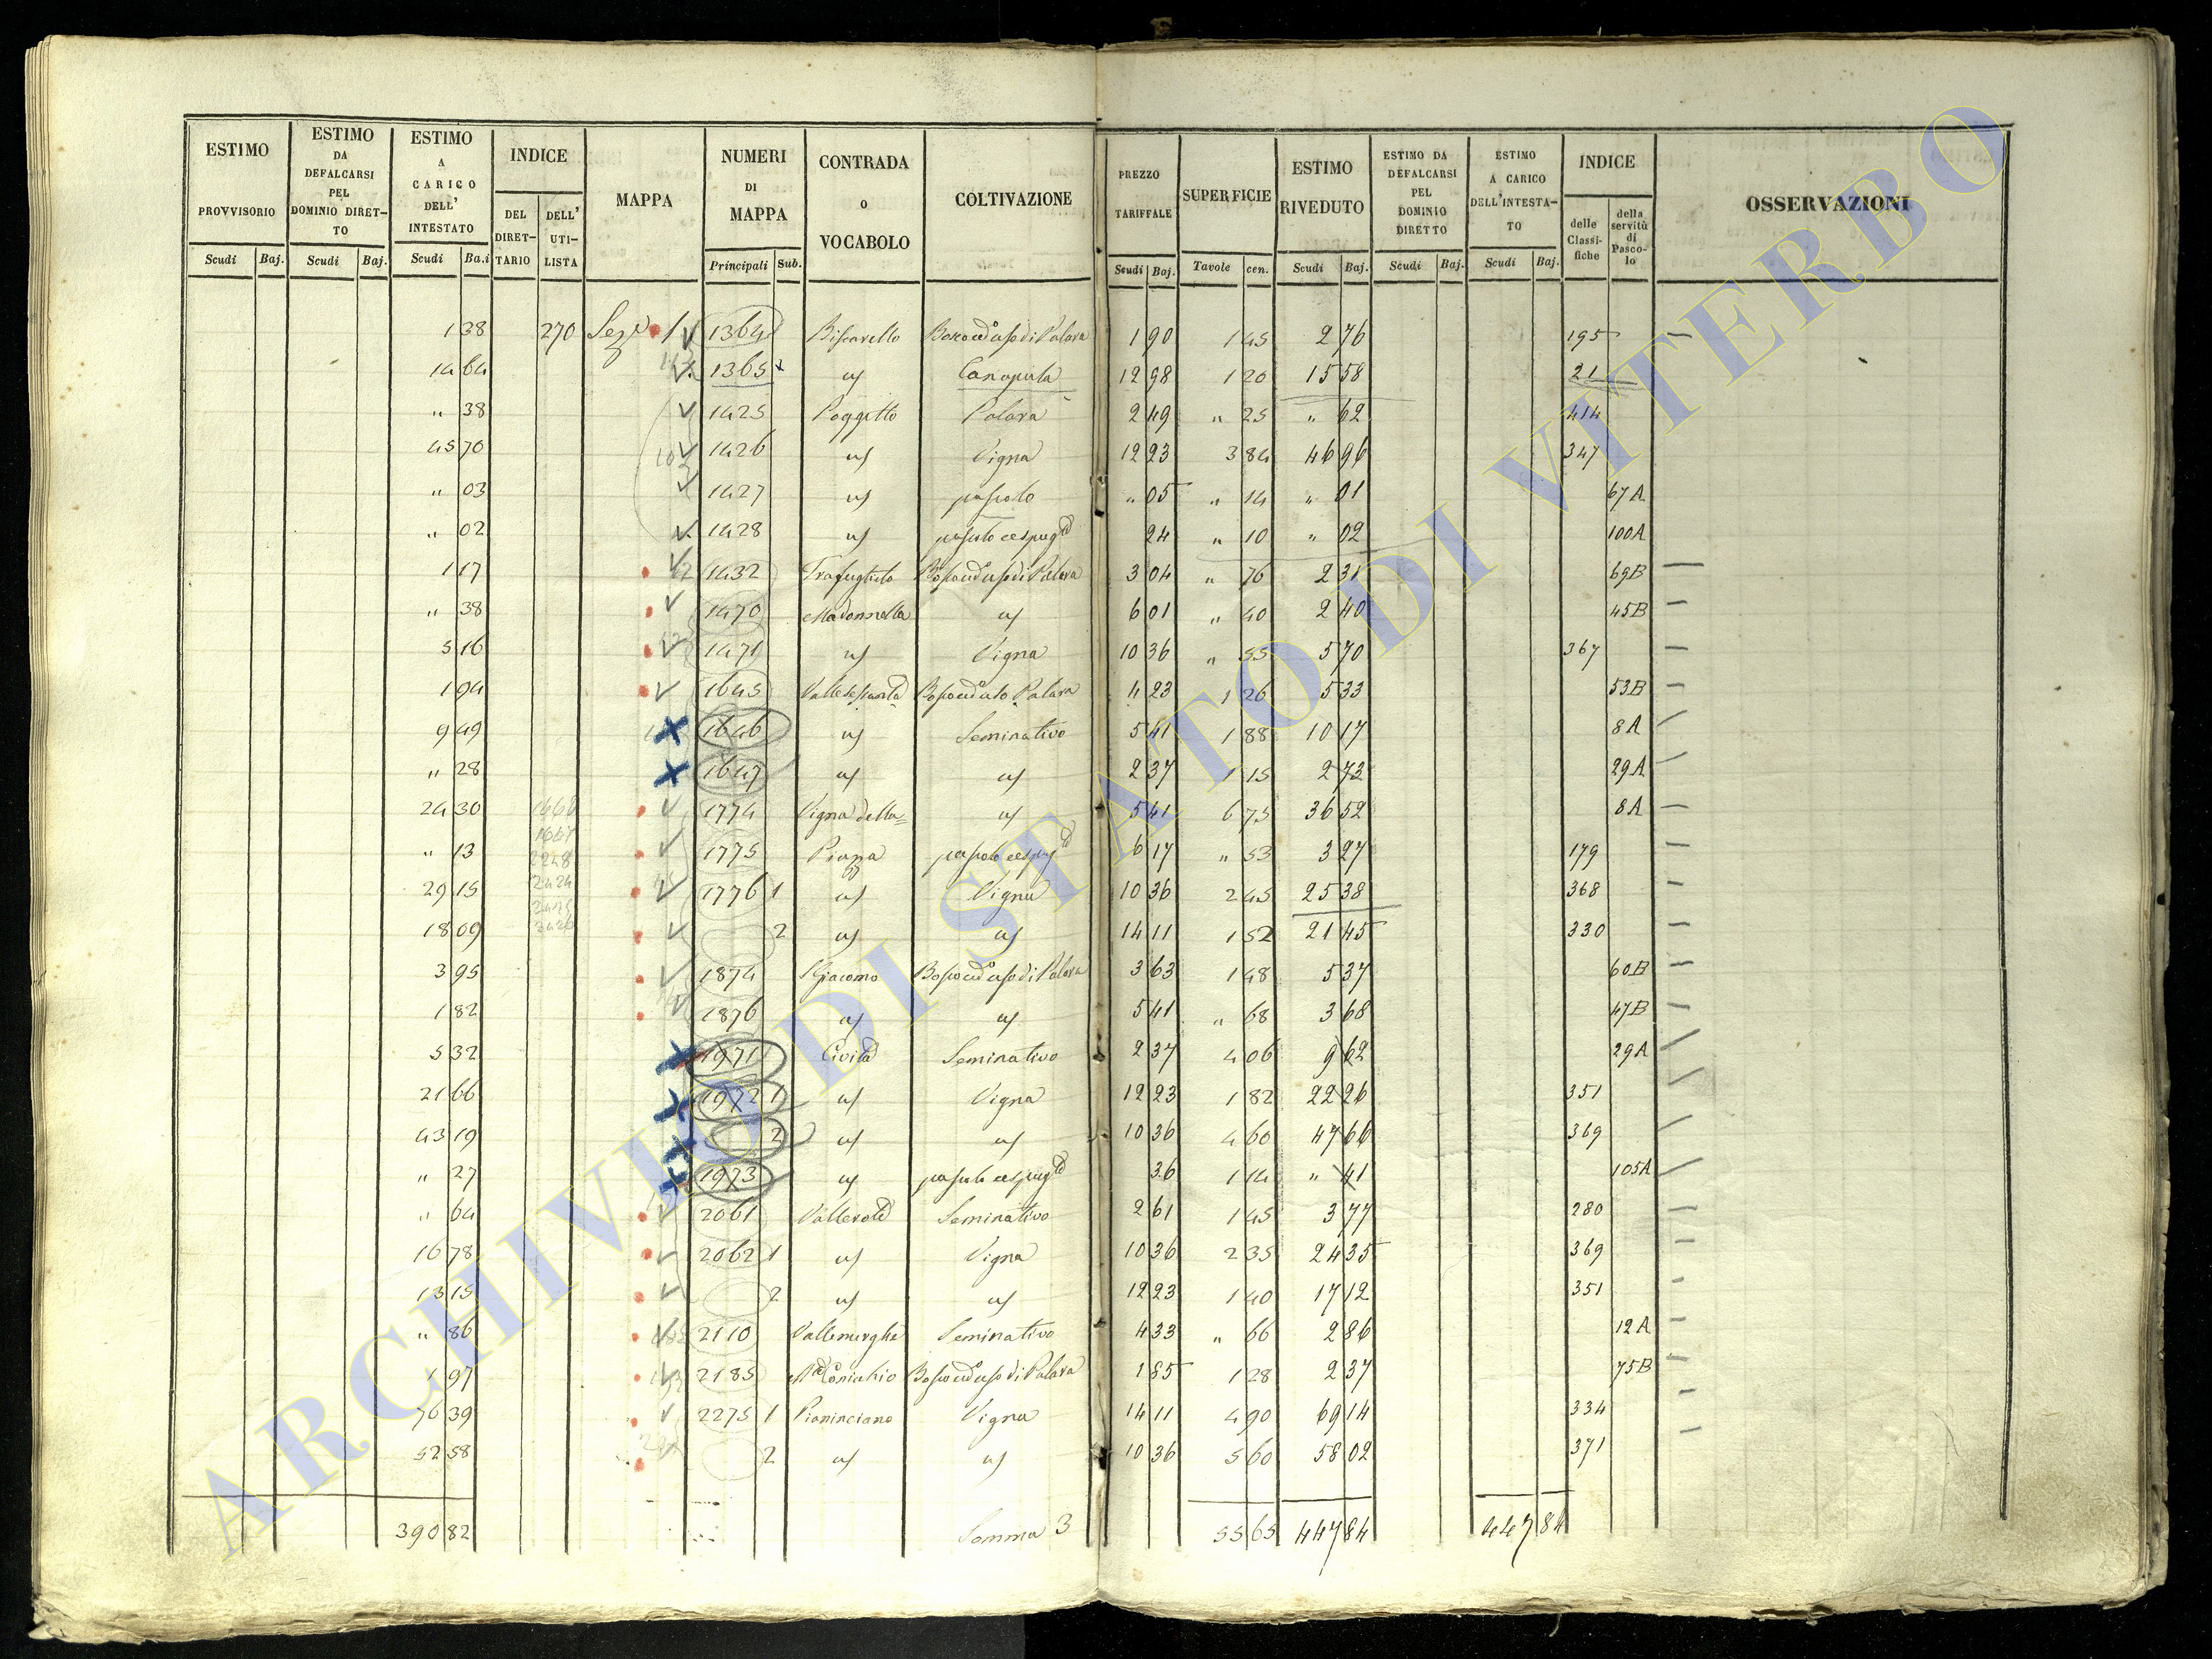 ESTIMO PROVVISORIO | ESTIMO DA DEFALCARSI PEL DOMINIO DIRET-TO | ESTIMO A CARICO DELL' INTESTATO | INDICE | MAPPA | NUMERI DI MAPPA | CONTRADA o VOCABOLO | COLTIVAZIONE | PREZZO TARIFFALE | SUPERFICIE | ESTIMO RIVEDUTO | ESTIMO DA DEFALCARSI PEL DOMINIO DIRETTO | ESTIMO A CARICO DELL'INTESTA-TO | INDICE | OSSERVAZIONI
DEL DIRET-TARIO | DELL' UTI-LISTA | delle Classi-fiche | della servitù di Pasco-lo
Scudi | Baj. | Scudi | Baj. | Scudi | Ba.i | Principali | Sub. | Scudi | Baj. | Tavole | cen. | Scudi | Baj. | Scudi | Baj. | Scudi | Baj.
1 38 | 270 | Sez. 1 | 1364 | Biscarello | 1 90 | 1 45 | 2 76 | 195
14 64 | 1365 | uj | Canapula | 12 98 | 1 20 | 15 58 | 21
" 38 | 1425 | Poggetto | Palara | 2 49 | " 25 | " 62 | 414
45 70 | 1426 | uj | Vigna | 12 23 | 3 84 | 46 96 | 347
" 03 | 1427 | uj | pascolo | " 05 | " 14 | " 01 | 67A
" 02 | 1428 | uj | pascolo cespugto | 24 | " 10 | " 02 | 100A
1 17 | 1432 | 3 04 | " 76 | 2 31 | 69B
" 38 | 1470 | Madonnella | uj | 6 01 | " 40 | 2 40 | 45B
5 16 | 1471 | uj | Vigna | 10 36 | " 55 | 5 70 | 367
1 94 | 1645 | 4 23 | 1 26 | 5 33 | 53B
9 49 | 1646 | uj | Seminativo | 5 41 | 1 88 | 10 17 | 8A
" 28 | 1647 | uj | uj | 2 37 | 1 15 | 2 73 | 29A
24 30 | 1774 | Vigna della= | uj | 5 41 | 6 75 | 36 52 | 8A
" 13 | 1775 | Piazza | pascolo cespugto | 6 17 | " 53 | 3 27 | 179
29 15 | 1776 1 | uj | Vigna | 10 36 | 2 45 | 25 38 | 368
18 09 | 2 | uj | uj | 14 11 | 1 52 | 21 45 | 330
3 95 | 1874 | S Giacomo | 3 63 | 1 48 | 5 37 | 60B
1 82 | 1876 | uj | uj | 5 41 | " 68 | 3 68 | 47B
5 32 | 1971 | Civita | Seminativo | 2 37 | 4 06 | 9 62 | 29A
21 66 | 1972 1 | uj | Vigna | 12 23 | 1 82 | 22 26 | 351
43 19 | 2 | uj | uj | 10 36 | 4 60 | 47 66 | 369
" 27 | 1973 | uj | pascolo cespugto | 36 | 1 14 | " 41 | 105A
" 64 | 2061 | Seminativo | 2 61 | 1 45 | 3 77 | 280
16 78 | 2062 1 | uj | Vigna | 10 36 | 2 35 | 24 35 | 369
13 15 | 2 | uj | uj | 12 23 | 1 40 | 17 12 | 351
" 86 | 2110 | Seminativo | 4 33 | " 66 | 2 86 | 12A
1 97 | 2185 | 1 85 | 1 28 | 2 37 | 75B
76 39 | 2275 1 | Pianinciano | Vigna | 14 11 | 4 90 | 69 14 | 334
52 58 | 2 | uj | uj | 10 36 | 5 60 | 58 02 | 371
390 82 | Somma 3 | 55 65 | 447 84 | 447 84
ARCHIVIO DI STATO DI VITERBO